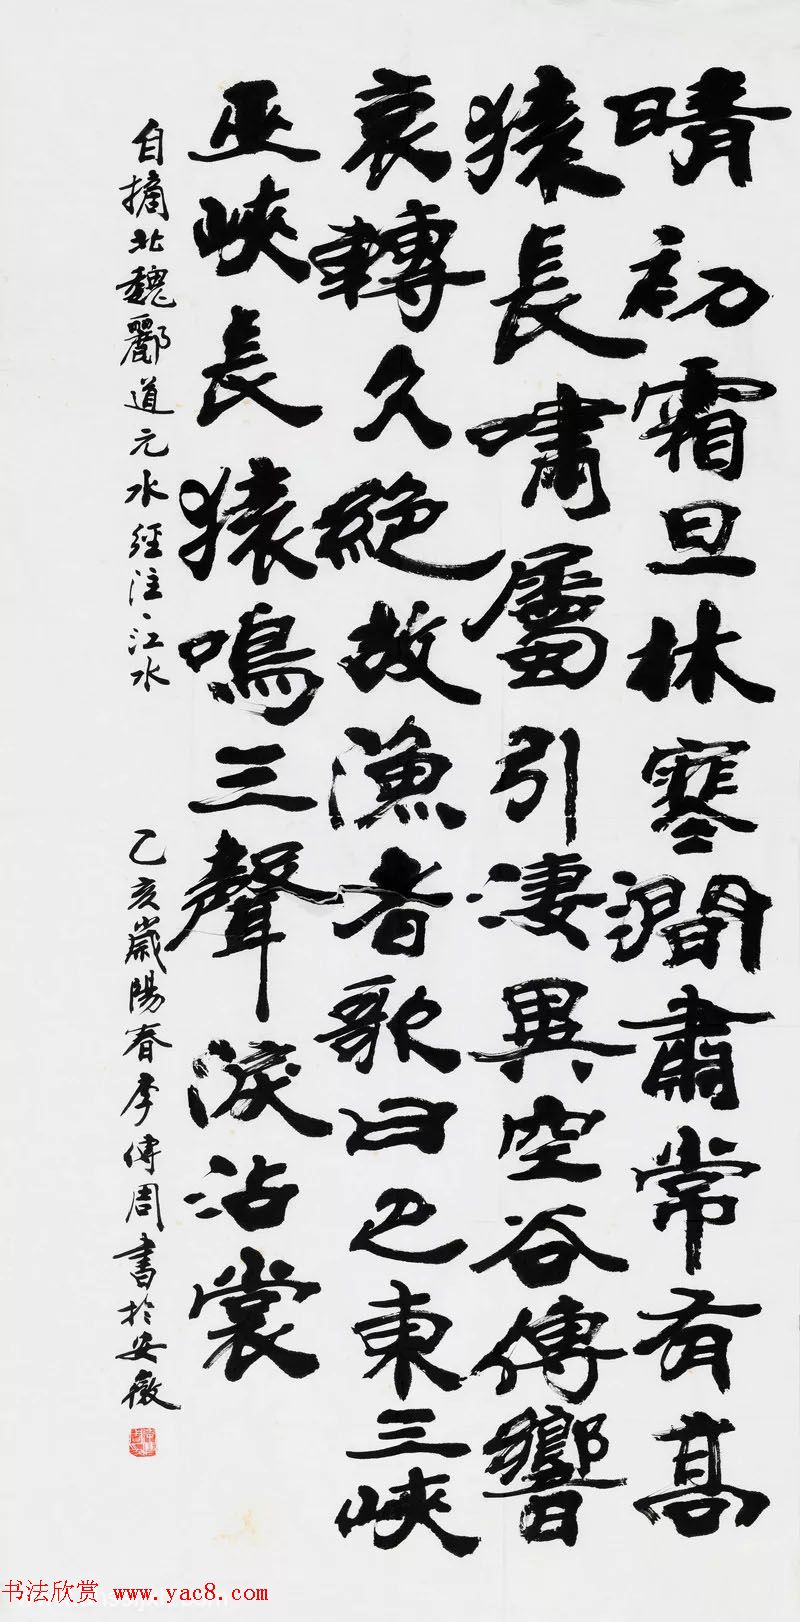 晴初霜旦林寒澗肅常有高
猿長嘯屬引淒異空谷傳響
哀轉久絕故漁者歌曰巴東三峽
巫峽長猿鳴三聲淚沾裳
自摘北魏酈道元水經注、江水 乙亥歲陽春李傳周書於安徽
书法欣赏 www.yac8.com